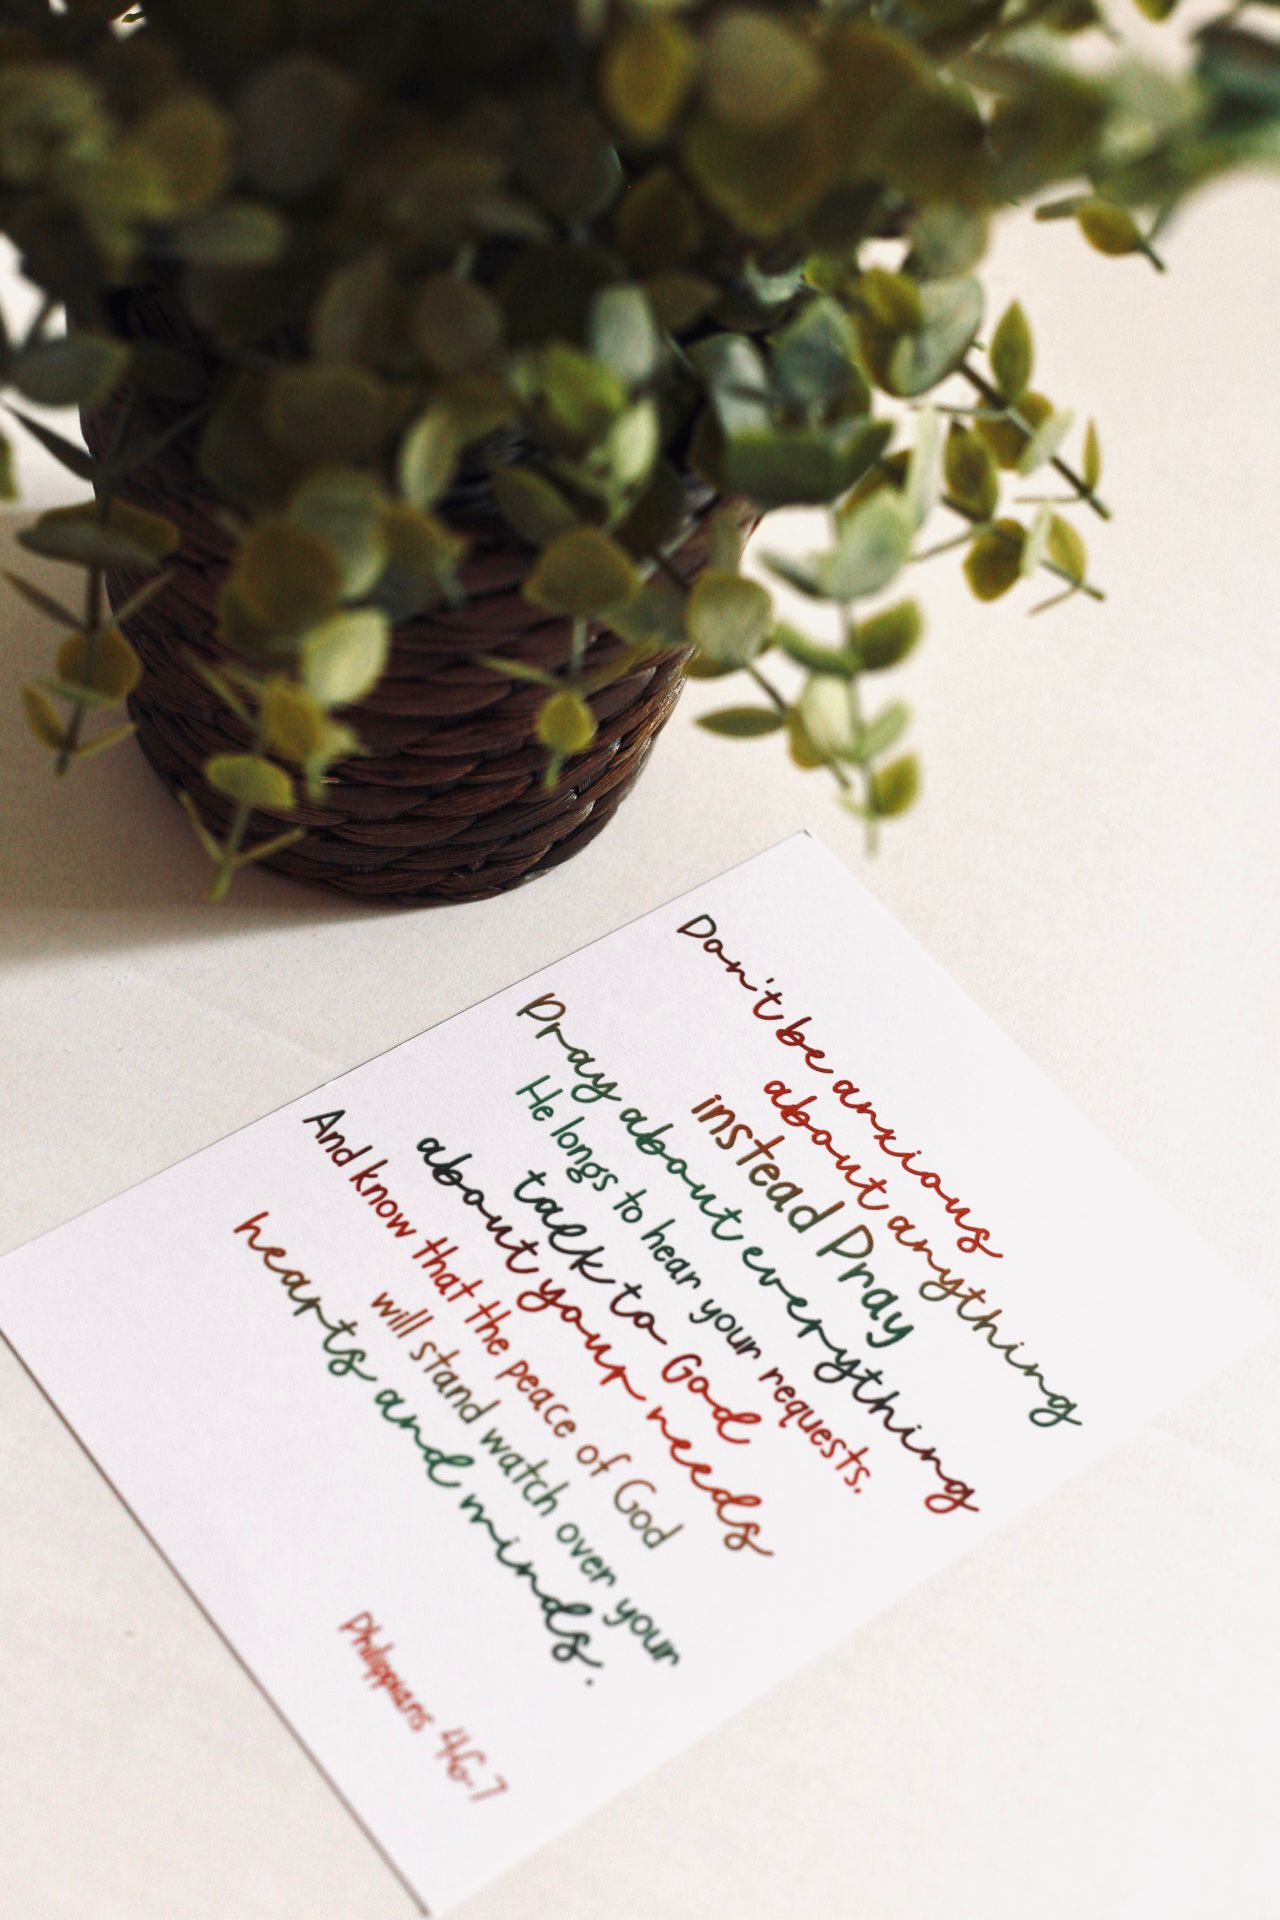 Don't be anxious
about anything
instead Pray
Pray about everything
He longs to hear your requests.
talk to God
about your needs
And know that the peace of God
will stand watch over your
hearts and minds.
Philippians 4:6-7